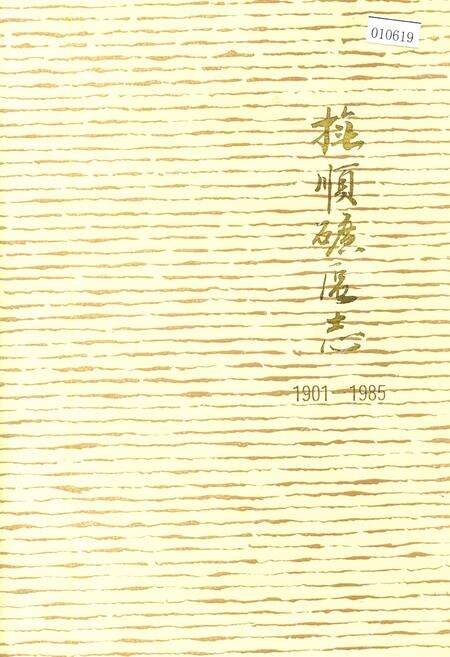 010619
撫順礦区志
1901—1985